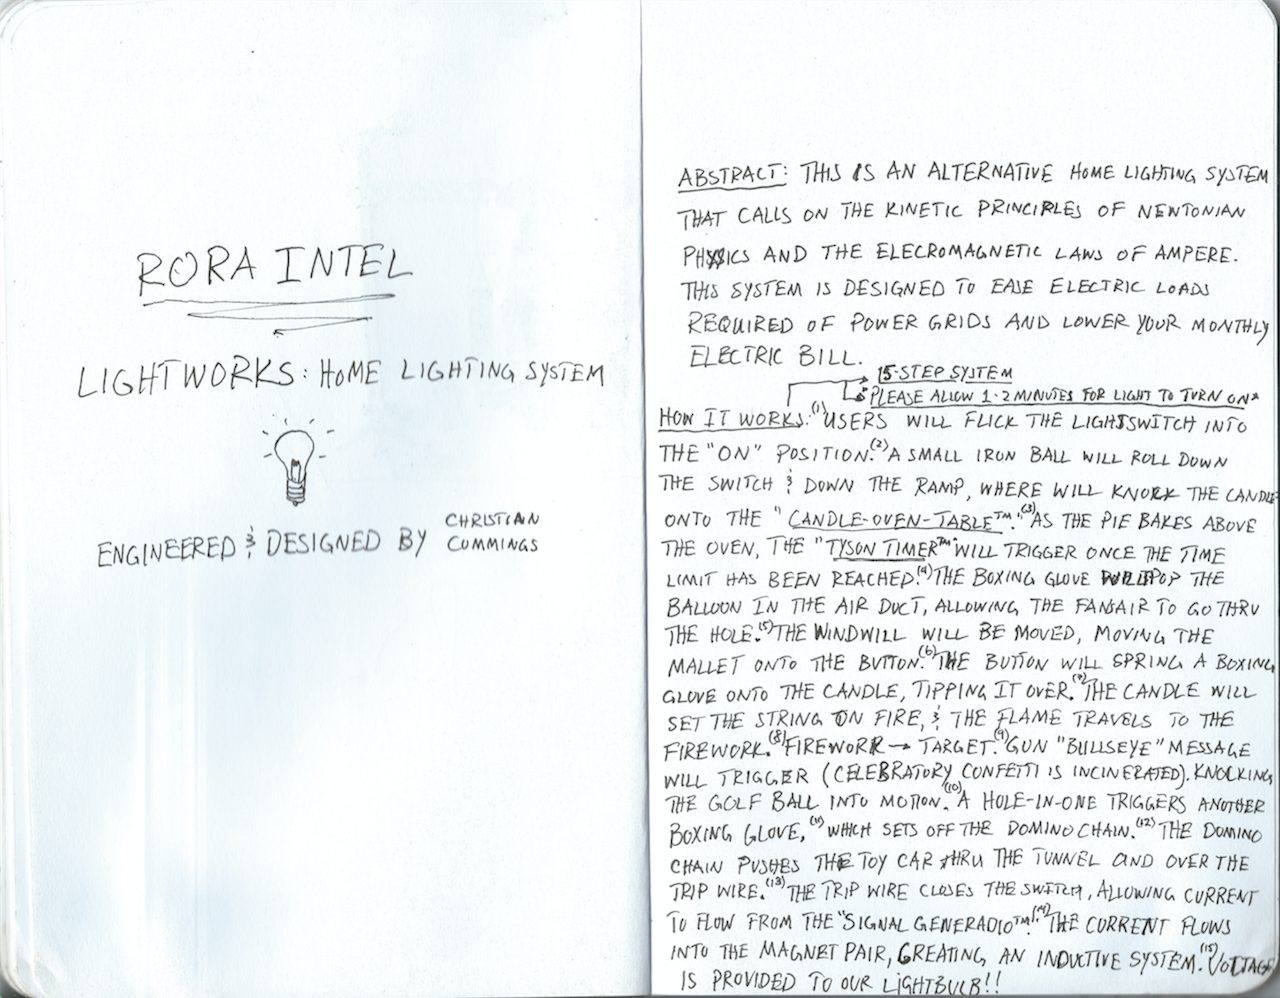 RORA INTEL
LIGHTWORKS: HOME LIGHTING SYSTEM
ENGINEERED & DESIGNED BY CHRISTIAN CUMMINGS
ABSTRACT: THIS IS AN ALTERNATIVE HOME LIGHTING SYSTEM
THAT CALLS ON THE KINETIC PRINCIPLES OF NEWTONIAN
PHYSICS AND THE ELECROMAGNETIC LAWS OF AMPERE.
THIS SYSTEM IS DESIGNED TO EASE ELECTRIC LOADS
REQUIRED OF POWER GRIDS AND LOWER YOUR MONTHLY
ELECTRIC BILL.
15-STEP SYSTEM
PLEASE ALLOW 1-2 MINUTES FOR LIGHT TO TURN ON*
HOW IT WORKS: (1) USERS WILL FLICK THE LIGHTSWITCH INTO
THE "ON" POSITION. (2) A SMALL IRON BALL WILL ROLL DOWN
THE SWITCH & DOWN THE RAMP, WHERE WILL KNOCK THE CANDLE
ONTO THE "CANDLE-OVEN-TABLE™". (3) AS THE PIE BAKES ABOVE
THE OVEN, THE "TYSON TIMER™" WILL TRIGGER ONCE THE TIME
LIMIT HAS BEEN REACHED. (4) THE BOXING GLOVE WILL POP THE
BALLOON IN THE AIR DUCT, ALLOWING THE FANSAIR TO GO THRU
THE HOLE. (5) THE WINDWILL WILL BE MOVED, MOVING THE
MALLET ONTO THE BUTTON. (6) THE BUTTON WILL SPRING A BOXING
GLOVE ONTO THE CANDLE, TIPPING IT OVER. (7) THE CANDLE WILL
SET THE STRING ON FIRE, & THE FLAME TRAVELS TO THE
FIREWORK. (8) FIREWORK → TARGET. (9) GUN "BULLSEYE" MESSAGE
WILL TRIGGER (CELEBRATORY CONFETTI IS INCINERATED). KNOCKING
THE GOLF BALL INTO MOTION. (10) A HOLE-IN-ONE TRIGGERS ANOTHER
BOXING GLOVE, (11) WHICH SETS OFF THE DOMINO CHAIN. (12) THE DOMINO
CHAIN PUSHES THE TOY CAR THRU THE TUNNEL AND OVER THE
TRIP WIRE. (13) THE TRIP WIRE CLOSES THE SWITCH, ALLOWING CURRENT
TO FLOW FROM THE "SIGNAL GENERADIO™". (14) THE CURRENT FLOWS
INTO THE MAGNET PAIR, CREATING AN INDUCTIVE SYSTEM. (15) VOLTAGE
IS PROVIDED TO OUR LIGHTBULB!!